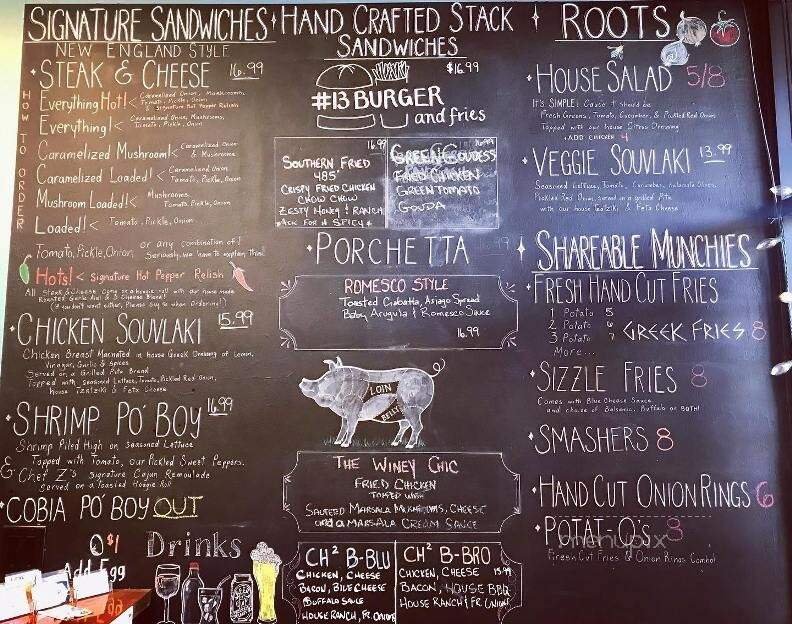 SIGNATURE SANDWICHES
NEW ENGLAND STYLE
STEAK & CHEESE 16.99
HOW TO ORDER
Everything Hot! < Caramelized Onion, Mushrooms,
Tomato, Pickle, Onion
& Signature Hot Pepper Relish
Everything! < Caramelized Onion, Mushrooms,
Tomato, Pickle, Onion
Caramelized Mushroom! < Caramelized Onion
& Mushrooms
Caramelized Loaded! < Caramelized Onion
Tomato, Pickle, Onion
Mushroom Loaded! < Mushrooms,
Tomato, Pickle, Onion
Loaded! < Tomato, Pickle, Onion
Tomato, Pickle, Onion or any combination of!
Seriously, we have to explain this!
Hots! < Signature Hot Pepper Relish
All Steak & Cheese Come on a hoagie roll with our house made
Roasted Garlic Aioli & 3 Cheese Blend!
(If you don't want either, Please say so when Ordering!)
CHICKEN SOUVLAKI 15.99
Chicken Breast Marinated in house Greek Dressing of Lemon,
Vinegar, Garlic & Spices
Served on a Grilled Pita Bread
Topped with Seasoned Lettuce, Tomato, Pickled Red Onion,
house Tzatziki & Feta Cheese
SHRIMP PO' BOY 16.99
Shrimp Piled High on Seasoned Lettuce
Topped with Tomato, our Pickled Sweet Peppers.
& Chef Z's Signature Cajun Remoulade
Served on a Toasted Hoagie Roll
COBIA PO' BOY OUT
$1
Add Egg
Drinks
HAND CRAFTED STACK
SANDWICHES
$16.99
#13 BURGER
and fries
16.99
SOUTHERN FRIED
485°
CRISPY FRIED CHICKEN
CHOW CHOW
ZESTY HONEY & RANCH
*ASK FOR it SPICY*
16.99
GREEN GOUDESS
FRIED CHICKEN
GREEN TOMATO
GOUDA
PORCHETTA 16.99
ROMESCO STYLE
Toasted Ciabatta, Asiago Spread
Baby Arugula & Romesco Sauce
16.99
LOIN
BELLY
THE WINEY CHIC
FRIED CHICKEN
TOPPED WITH
SAUTEED MARSALA MUSHROOMS, CHEESE
and a MARSALA CREAM SAUCE
CH² B-BLU
CHICKEN, CHEESE
BACON, BLUE CHEESE
BUFFALO SAUCE
HOUSE RANCH, FR. ONIONS
CH² B-BRO
CHICKEN, CHEESE 15.99
BACON, HOUSE BBQ
HOUSE RANCH & FR. ONIONS
ROOTS
HOUSE SALAD 5/8
IT'S SIMPLE! Cause it should be
Fresh Greens, Tomato, Cucumber, & Pickled Red Onion
Topped with our house Citrus Dressing
*ADD CHICKEN 4
VEGGIE SOUVLAKI 13.99
Seasoned Lettuce, Tomato, Cucumber, Kalamata Olives,
Pickled Red Onion, served on a grilled Pita
with our house Tzatziki & Feta Cheese
SHAREABLE MUNCHIES
FRESH HAND CUT FRIES
1 Potato 5
2 Potato 6
3 Potato 7
More...
GREEK FRIES 8
SIZZLE FRIES 8
Comes with Blue Cheese Sauce
and choice of Balsamic, Buffalo or BOTH!
SMASHERS 8
HAND CUT ONION RINGS 6
POTAT-O'S 8
Fresh Cut Fries & Onion Rings Combo!
menupix